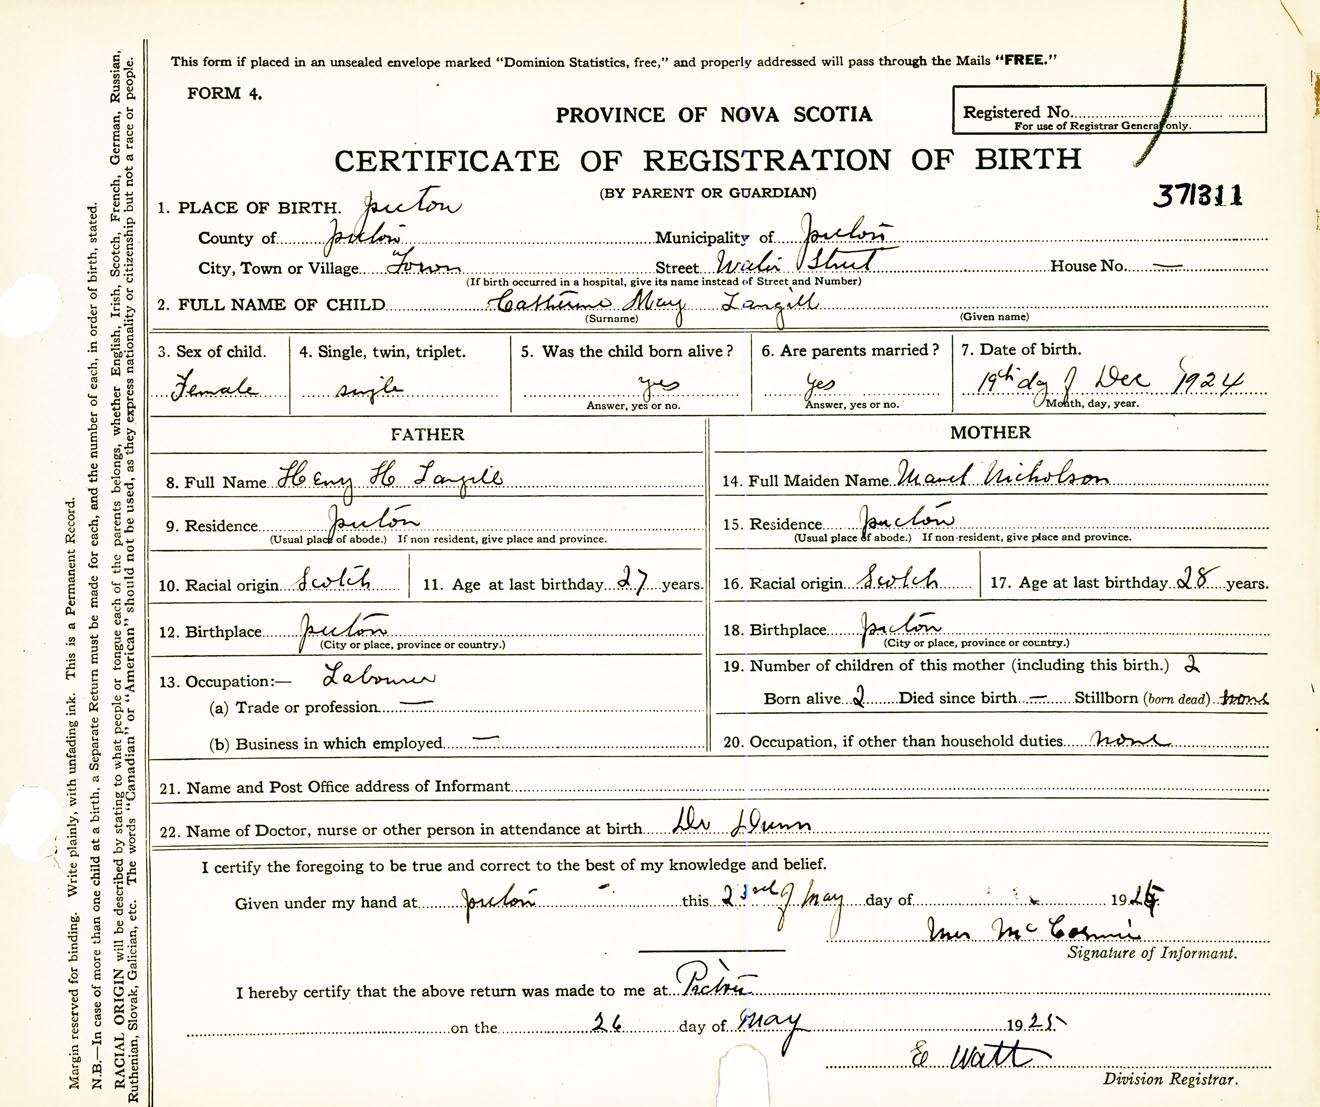 This form if placed in an unsealed envelope marked "Dominion Statistics, free," and properly addressed will pass through the Mails "FREE."
FORM 4.
PROVINCE OF NOVA SCOTIA
Registered No.
For use of Registrar General only.
CERTIFICATE OF REGISTRATION OF BIRTH
(BY PARENT OR GUARDIAN)
371311
1. PLACE OF BIRTH. Pictou
County of Pictou Municipality of Pictou
City, Town or Village Town Street Water Street House No. —
(If birth occurred in a hospital, give its name instead of Street and Number)
2. FULL NAME OF CHILD Catherine May Langill
(Surname) (Given name)
3. Sex of child. 4. Single, twin, triplet. 5. Was the child born alive? 6. Are parents married? 7. Date of birth.
Female single yes yes 19th day of Dec 1924
Answer, yes or no. Answer, yes or no. Month, day, year.
FATHER MOTHER
8. Full Name Henry H Langille 14. Full Maiden Name Nicholson
9. Residence Pictou 15. Residence Pictou
(Usual place of abode.) If non resident, give place and province. (Usual place of abode.) If non-resident, give place and province.
10. Racial origin Scotch 11. Age at last birthday 27 years. 16. Racial origin Scotch 17. Age at last birthday 28 years.
12. Birthplace Pictou 18. Birthplace Pictou
(City or place, province or country.) (City or place, province or country.)
13. Occupation:— Labourer 19. Number of children of this mother (including this birth.) 2
(a) Trade or profession — Born alive 2 Died since birth — Stillborn (born dead) none
(b) Business in which employed — 20. Occupation, if other than household duties none
21. Name and Post Office address of Informant
22. Name of Doctor, nurse or other person in attendance at birth Dr Dunn
I certify the foregoing to be true and correct to the best of my knowledge and belief.
Given under my hand at Pictou this 23rd of May day of 1925
Mrs McCormic
Signature of Informant.
I hereby certify that the above return was made to me at Pictou
on the 26 day of May 1925
E Watt
Division Registrar.
Margin reserved for binding. Write plainly, with unfading ink. This is a Permanent Record.
N.B.—In case of more than one child at a birth, a Separate Return must be made for each, and the number of each, in order of birth, stated.
RACIAL ORIGIN will be described by stating to what people or tongue each of the parents belongs, whether English, Irish, Scotch, French, German, Russian,
Ruthenian, Slovak, Galician, etc. The words "Canadian" or "American" should not be used, as they express nationality or citizenship but not a race or people.